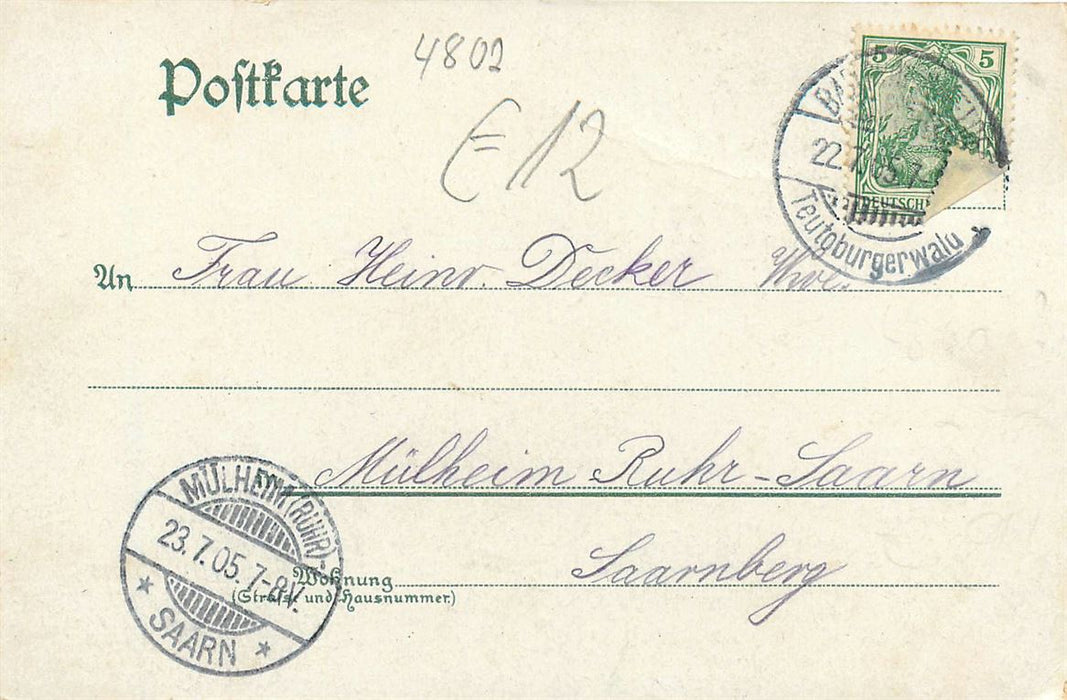 4802
Postkarte
E 12
5 5
22.7.05.7
DEUTSCH
Teutoburgerwald
An Frau Heinr. Decker Wwe.
Mülheim Ruhr-Saarn
MÜLHEIM (RUHR)-
23.7.05.7-8V.
* SAARN *
Saarnberg
Wohnung
(Straße und Hausnummer.)